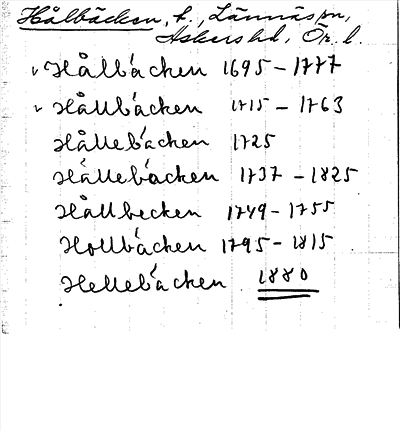 Hålbäcken, t., Lännäs sn,
Askers hd, Ör. l.
v Hålbäcken 1695-1777
v Hållbäcken 1715 - 1763
Hållebäcken 1725
Hällebäcken 1737 - 1825
Hållbecken 1749-1755
Hollbäcken 1795-1815
Hellebäcken 1880